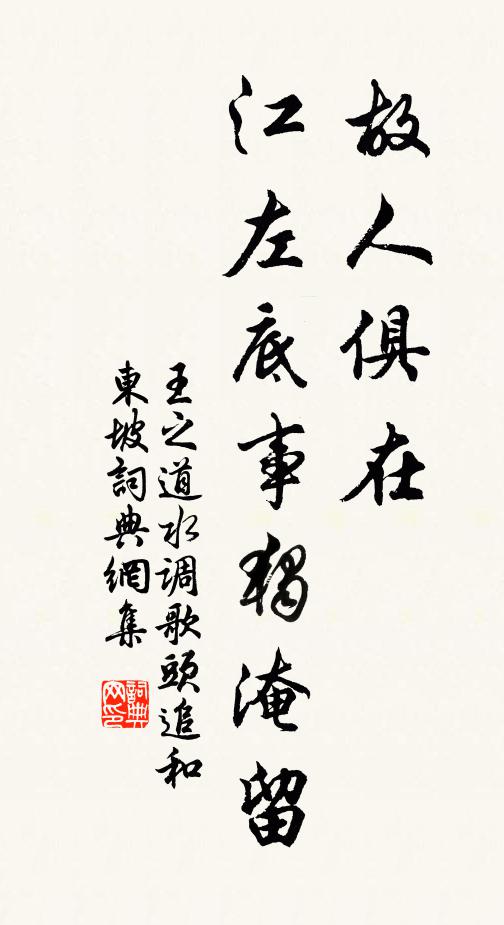 故人俱在
江左底事獨淹留
王之道水調歌頭追和
東坡詞典網集
詞典网印